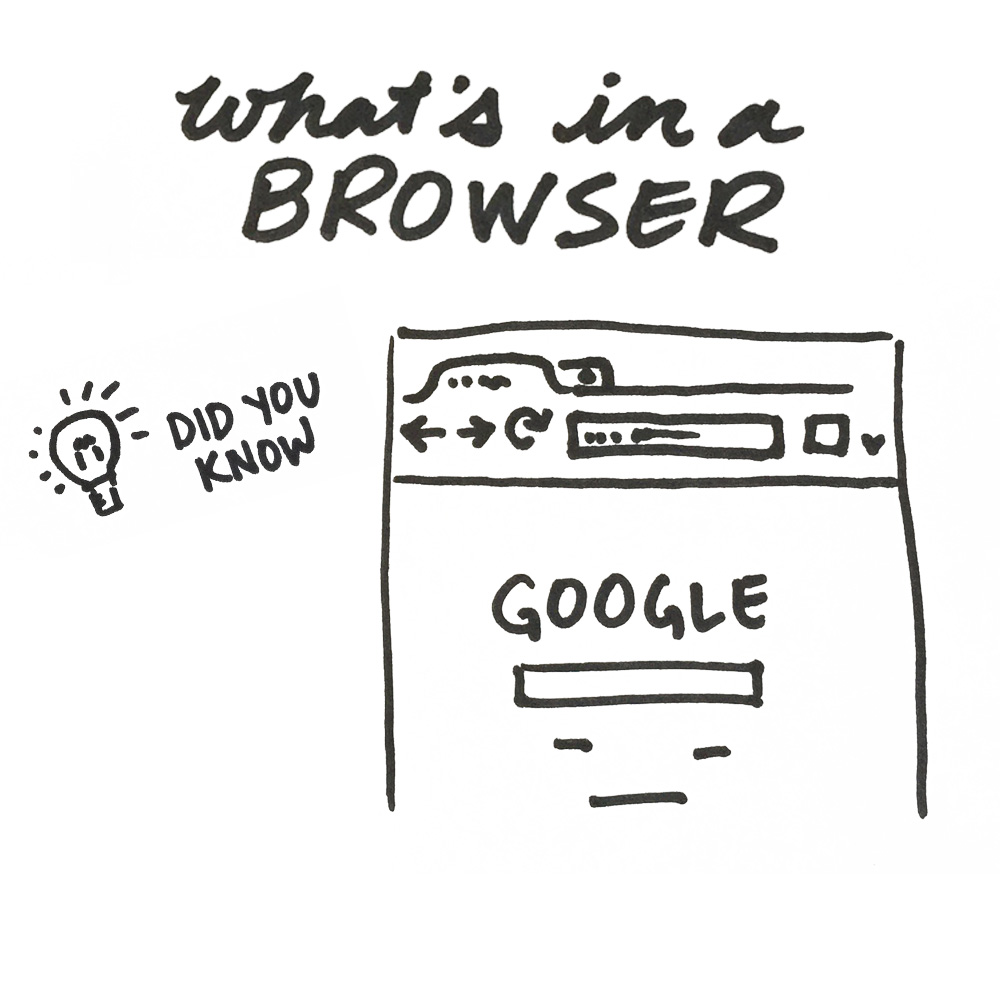 what's in a
BROWSER
DID YOU
KNOW
GOOGLE